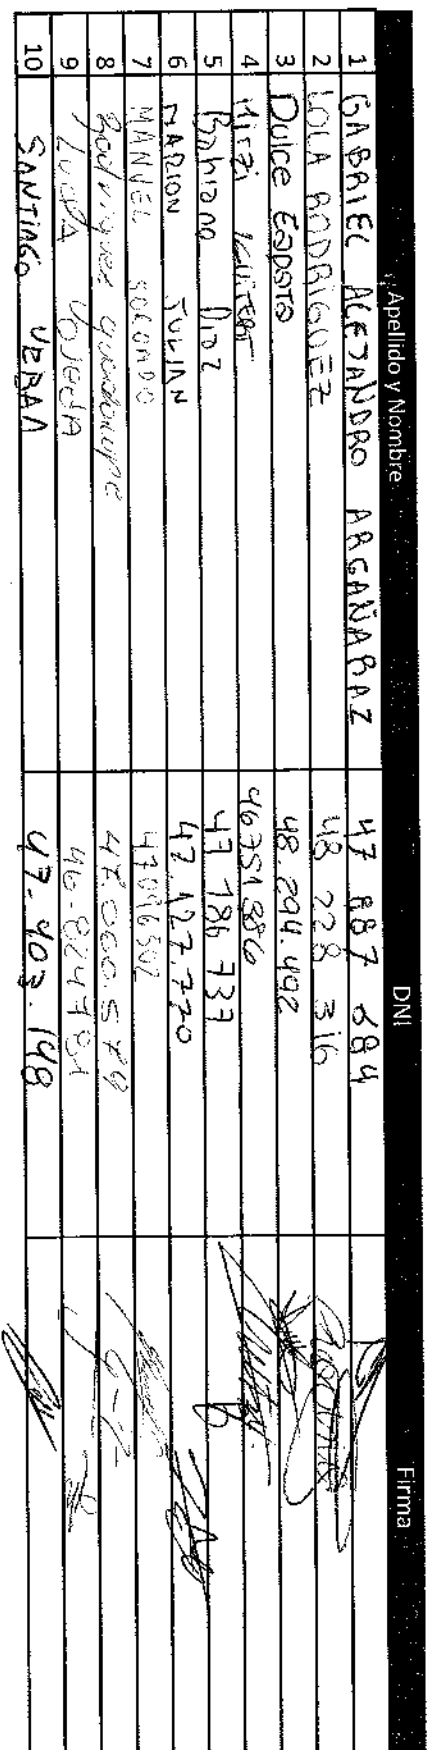 Apellido y Nombre DNI Firma
1 GABRIEL ALEJANDRO ARGAÑARAZ 47 887 284
2 LOLA RODRIGUEZ 48 228 316
3 Dulce Esposto 48.294.492
4 Mitzi 46751886
5 Diaz 47 786 737
6 MARION JULIAN 47.127.770
7 MANUEL SOCONDO 47046502
8 Rodriguez guadalupe 47.000.579
9 Lucia 46.824784
10 SANTIAGO VERAA 47.403.148